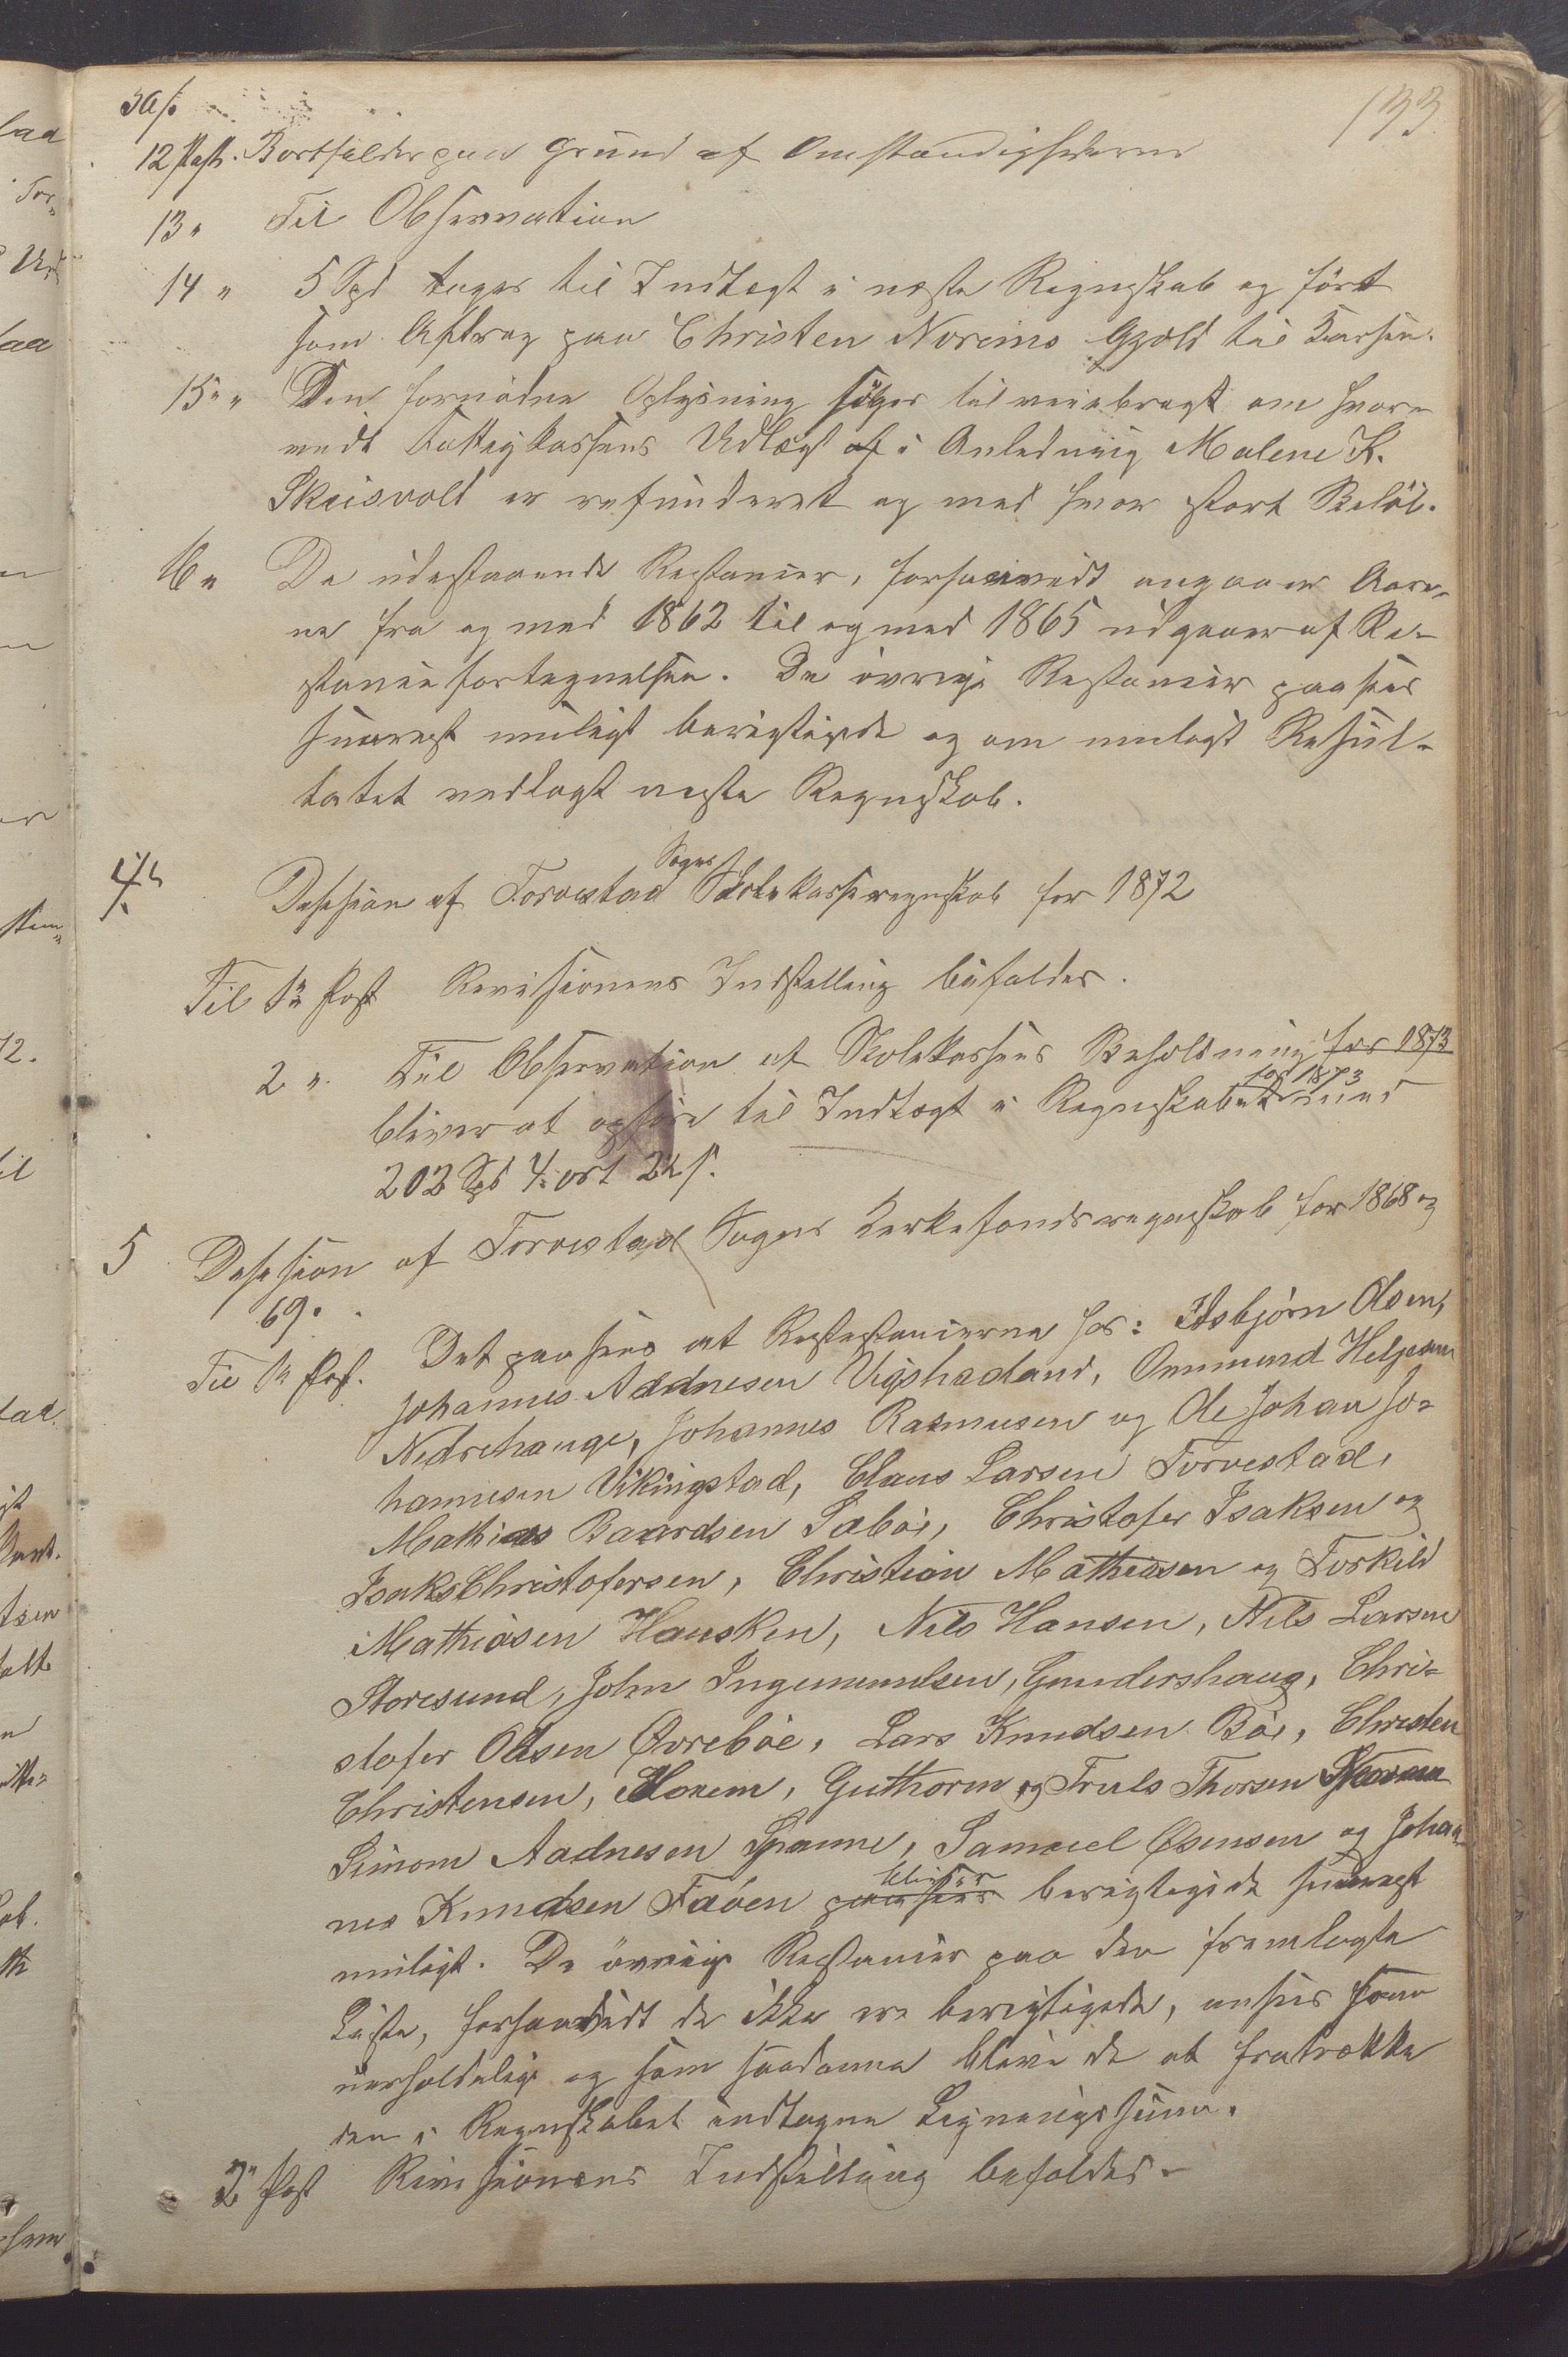 133
12 Post. Bortfalder paa Grund af Omstændighederne
13 " Til Observation
14 " 5 Spd tages til Indtægt i næste Regnskab og fört
som Afdrag paa Christen Noreims Gjæld til Kassen.
15 " " Den fornödne Oplysning söges tilveiebragt om hvor-
vidt Fattigkassens Udlæg af i Anledning Malene K.
Skeisvold er refunderet og med hvor stort Belöb.
16 " De udestaaende Restancer, forsaavidt angaaer Aare-
ne fra og med 1862 til og med 1865 udgaaer af Re-
stancefortegnelsen. De övrige Restancer paasees
snarest muligt berigtigede og om muligt Resul-
tatet vedlagt næste Regnskab.
4 Desision af Torvestad Sogns Skolekasseregnskab for 1872
Til 1ste Post Revisionens Indstilling bifaldes.
2 " Til Observation at Skolekassens Beholdning for 1873
bliver at opföre til Indtægt i Regnskabet for 1873 med
202 Spd 4 ort 22 s.
5 Desision af Torvestad Sogns Kirkefondsregnskab for 1868 og
69.
Til 1ste Post. Det paasees at Restancerne hos: Isbjörn Olsen,
Johannes Aadnesen Vigshadland, Ommund Helgesen
Nedrehauge, Johannes Rasmusen og Ole Johan Jo-
hannesen Vikingstad, Claus Larsen Torvestad,
Mathias Baardsen Sæböe, Christofer Isaksen og
Isak Christofersen, Christian Mathiasen og Torkild
Mathiasen Hausken, Nils Hansen, Nils Larsen
Storesund, John Ingemundsen, Gundershaug, Chri-
stofer Olsen Øvreböe, Lars Knudsen Böe, Christen
Christensen, Norem, Guthorm og Truls Thorsen
Simom Aadnesen Spanne, Samuel Osensen og Johan-
nes Knudsen Faöen paasees bliver berigtigede snarest
muligt. De övrige Restancer paa den fremlagte
Liste, forsaavidt de ikke ere berigtigede, ansees som
uerholdelige og som saadanne blive de at fratrække
den i Regnskabet indtagne Ligningssum.
2 Post Revisionens Indstilling bifaldes.